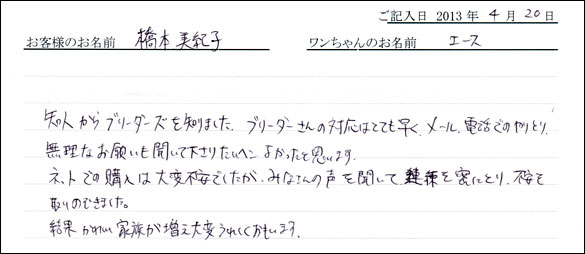 ご記入日 2013年 4月 20日
お客様のお名前 橋本美紀子 ワンちゃんのお名前 エース
知人からブリーダーズを知りました。ブリーダーさんの対応はとても早く、メール、電話でのやりとり、
無理なお願いも聞いて下さりたいへんよかったと思います。
ネットでの購入は大変不安でしたが、みなさんの声を聞いて、連絡を密にとり、不安を
取りのぞきました。
結果かわいい家族が増え大変うれしくおもいます。